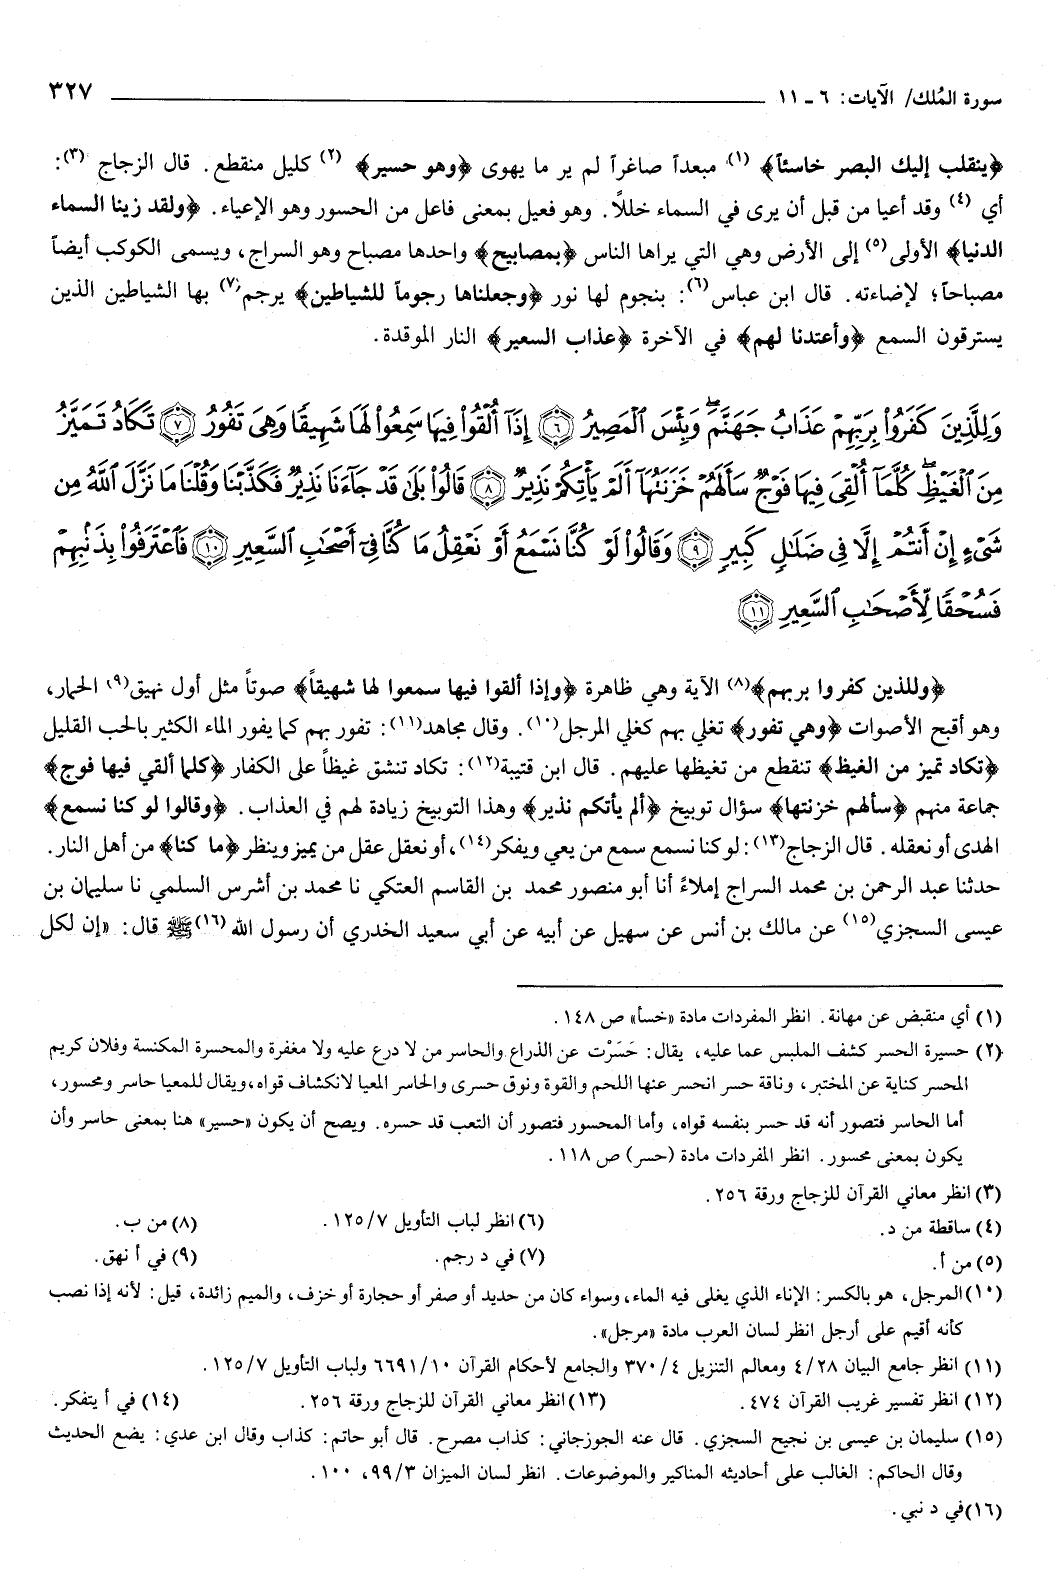 سورة الملك/ الآيات: ٦ ـ ١١ ٣٢٧
﴿ينقلب إليك البصر خاسئاً﴾ (١) مبعداً صاغراً لم ير ما يهوى ﴿وهو حسير﴾ (٢) كليل منقطع. قال الزجاج (٣):
أي (٤) وقد أعيا من قبل أن يرى في السماء خللاً. وهو فعيل بمعنى فاعل من الحسور وهو الإعياء. ﴿ولقد زينا السماء
الدنيا﴾ الأولى(٥) إلى الأرض وهي التي يراها الناس ﴿بمصابيح﴾ واحدها مصباح وهو السراج، ويسمى الكوكب أيضاً
مصباحاً؛ لإضاءته. قال ابن عباس(٦): بنجوم لها نور ﴿وجعلناها رجوماً للشياطين﴾ يرجم(٧) بها الشياطين الذين
يسترقون السمع ﴿وأعتدنا لهم﴾ في الآخرة ﴿عذاب السعير﴾ النار الموقدة.
وَلِلَّذِينَ كَفَرُواْ بِرَبِّهِمْ عَذَابُ جَهَنَّمَ ۖ وَبِئْسَ ٱلْمَصِيرُ ٦ إِذَآ أُلْقُواْ فِيهَا سَمِعُواْ لَهَا شَهِيقًا وَهِىَ تَفُورُ ٧ تَكَادُ تَمَيَّزُ
مِنَ ٱلْغَيْظِ ۖ كُلَّمَآ أُلْقِىَ فِيهَا فَوْجٌ سَأَلَهُمْ خَزَنَتُهَآ أَلَمْ يَأْتِكُمْ نَذِيرٌ ٨ قَالُواْ بَلَىٰ قَدْ جَآءَنَا نَذِيرٌ فَكَذَّبْنَا وَقُلْنَا مَا نَزَّلَ ٱللَّهُ مِن
شَىْءٍ إِنْ أَنتُمْ إِلَّا فِى ضَلَـٰلٍ كَبِيرٍ ٩ وَقَالُواْ لَوْ كُنَّا نَسْمَعُ أَوْ نَعْقِلُ مَا كُنَّا فِىٓ أَصْحَـٰبِ ٱلسَّعِيرِ ١٠ فَٱعْتَرَفُواْ بِذَنۢبِهِمْ
فَسُحْقًا لِّأَصْحَـٰبِ ٱلسَّعِيرِ ١١
﴿وللذين كفروا بربهم﴾(٨) الآية وهي ظاهرة ﴿وإذا ألقوا فيها سمعوا لها شهيقاً﴾ صوتاً مثل أول نهيق(٩) الحمار،
وهو أقبح الأصوات ﴿وهي تفور﴾ تغلي بهم كغلي المرجل(١٠). وقال مجاهد(١١): تفور بهم كما يفور الماء الكثير بالحب القليل
﴿تكاد تميز من الغيظ﴾ تنقطع من تغيظها عليهم. قال ابن قتيبة(١٢): تكاد تنشق غيظاً على الكفار ﴿كلما ألقي فيها فوج﴾
جماعة منهم ﴿سألهم خزنتها﴾ سؤال توبيخ ﴿ألم يأتكم نذير﴾ وهذا التوبيخ زيادة لهم في العذاب. ﴿وقالوا لو كنا نسمع﴾
الهدى أو نعقله. قال الزجاج(١٣): لو كنا نسمع سمع من يعي ويفكر(١٤)، أو نعقل عقل من يميز وينظر ﴿ما كنا﴾ من أهل النار.
حدثنا عبد الرحمن بن محمد السراج إملاءً أنا أبو منصور محمد بن القاسم العتكي نا محمد بن أشرس السلمي نا سليمان بن
عيسى السجزي(١٥) عن مالك بن أنس عن سهيل عن أبيه عن أبي سعيد الخدري أن رسول الله (١٦)ﷺ قال: «إن لكل
(١) أي منقبض عن مهانة. انظر المفردات مادة «خسأ» ص ١٤٨.
(٢) حسيرة الحسر كشف الملبس عما عليه، يقال: حَسَرْت عن الذراع والحاسر من لا درع عليه ولا مغفرة والمحسرة المكنسة وفلان كريم
المحسر كناية عن المختبر، وناقة حسر انحسر عنها اللحم والقوة ونوق حسرى والحاسر المعيا لانكشاف قواه، ويقال للمعيا حاسر ومحسور،
أما الحاسر فتصور أنه قد حسر بنفسه قواه، وأما المحسور فتصور أن التعب قد حسره. ويصح أن يكون «حسير» هنا بمعنى حاسر وأن
يكون بمعنى محسور. انظر المفردات مادة (حسر) ص ١١٨.
(٣) انظر معاني القرآن للزجاج ورقة ٢٥٦.
(٤) ساقطة من د. (٦) انظر لباب التأويل ١٢٥/٧. (٨) من ب.
(٥) من أ. (٧) في د رجم. (٩) في أ نهق.
(١٠) المرجل، هو بالكسر: الإناء الذي يغلى فيه الماء، وسواء كان من حديد أو صفر أو حجارة أو خزف، والميم زائدة، قيل: لأنه إذا نصب
كأنه أقيم على أرجل انظر لسان العرب مادة «مرجل».
(١١) انظر جامع البيان ٤/٢٨ ومعالم التنزيل ٣٧٠/٤ والجامع لأحكام القرآن ٦٦٩١/١٠ ولباب التأويل ١٢٥/٧.
(١٢) انظر تفسير غريب القرآن ٤٧٤. (١٣) انظر معاني القرآن للزجاج ورقة ٢٥٦. (١٤) في أ يتفكر.
(١٥) سليمان بن عيسى بن نجيح السجزي. قال عنه الجوزجاني: كذاب مصرح. قال أبو حاتم: كذاب وقال ابن عدي: يضع الحديث
وقال الحاكم: الغالب على أحاديثه المناكير والموضوعات. انظر لسان الميزان ٩٩/٣، ١٠٠.
(١٦) في د نبي.